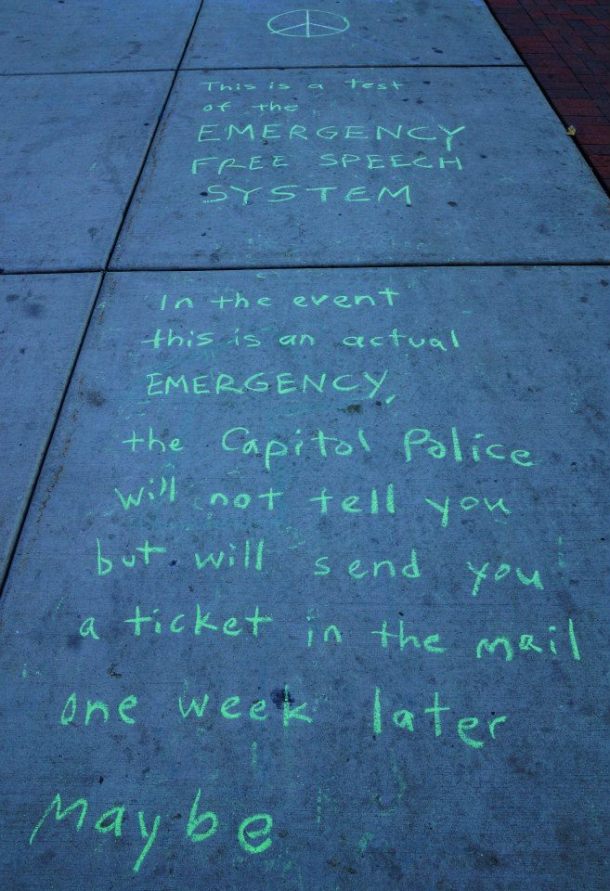 This is a test
of the
EMERGENCY
FREE SPEECH
SYSTEM
In the event
this is an actual
EMERGENCY,
the Capitol Police
will not tell you
but will send you
a ticket in the mail
one week later
Maybe